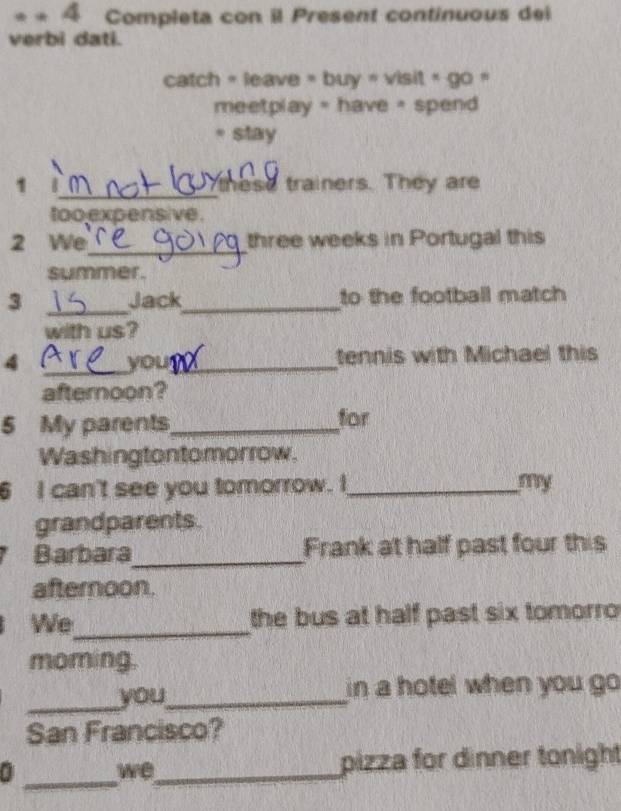 4 Completa con il Present continuous dei
verbi dati.
catch • leave • buy • visit • go •
meetplay • have • spend
• stay
1 I'm not buying these trainers. They are
tooexpensive.
2 We're going three weeks in Portugal this
summer.
3 Is Jack to the football match
with us?
4 Are you tennis with Michael this
afternoon?
5 My parents for
Washingtontomorrow.
6 I can't see you tomorrow. I my
grandparents.
7 Barbara Frank at half past four this
afternoon.
We the bus at half past six tomorro
morning.
you in a hotel when you go
San Francisco?
0 we pizza for dinner tonight